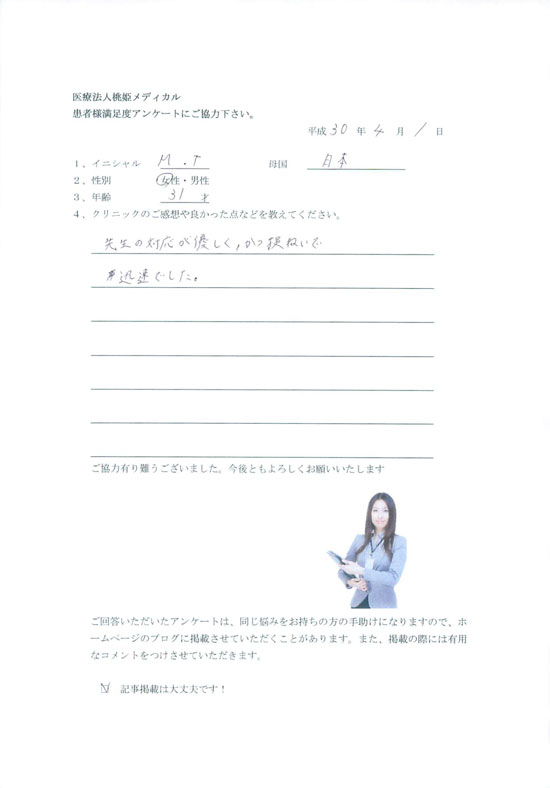 医療法人桃姫メディカル
患者様満足度アンケートにご協力下さい。
平成 30 年 4 月 1 日
1、イニシャル M.T 母国 日本
2、性別 女性・男性
3、年齢 31 才
4、クリニックのご感想や良かった点などを教えてください。
先生の対応が優しく、かつ
迅速でした。
ご協力有り難うございました。今後ともよろしくお願いいたします
ご回答いただいたアンケートは、同じ悩みをお持ちの方の手助けになりますので、ホ
ームページのブログに掲載させていただくことがあります。また、掲載の際には有用
なコメントをつけさせていただきます。
記事掲載は大丈夫です！